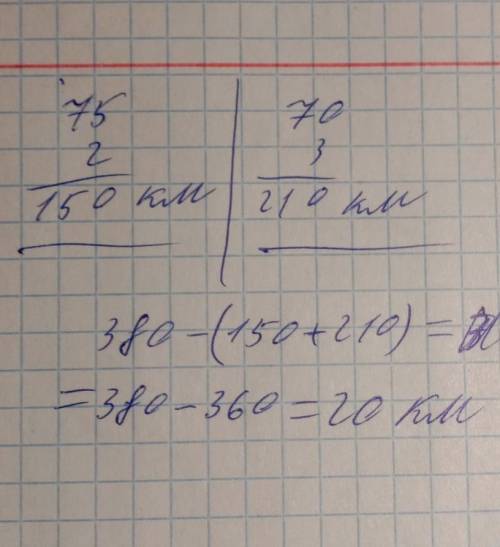 75
2
150 км
70
3
210 км
380-(150+210)=
=380-360=20 км